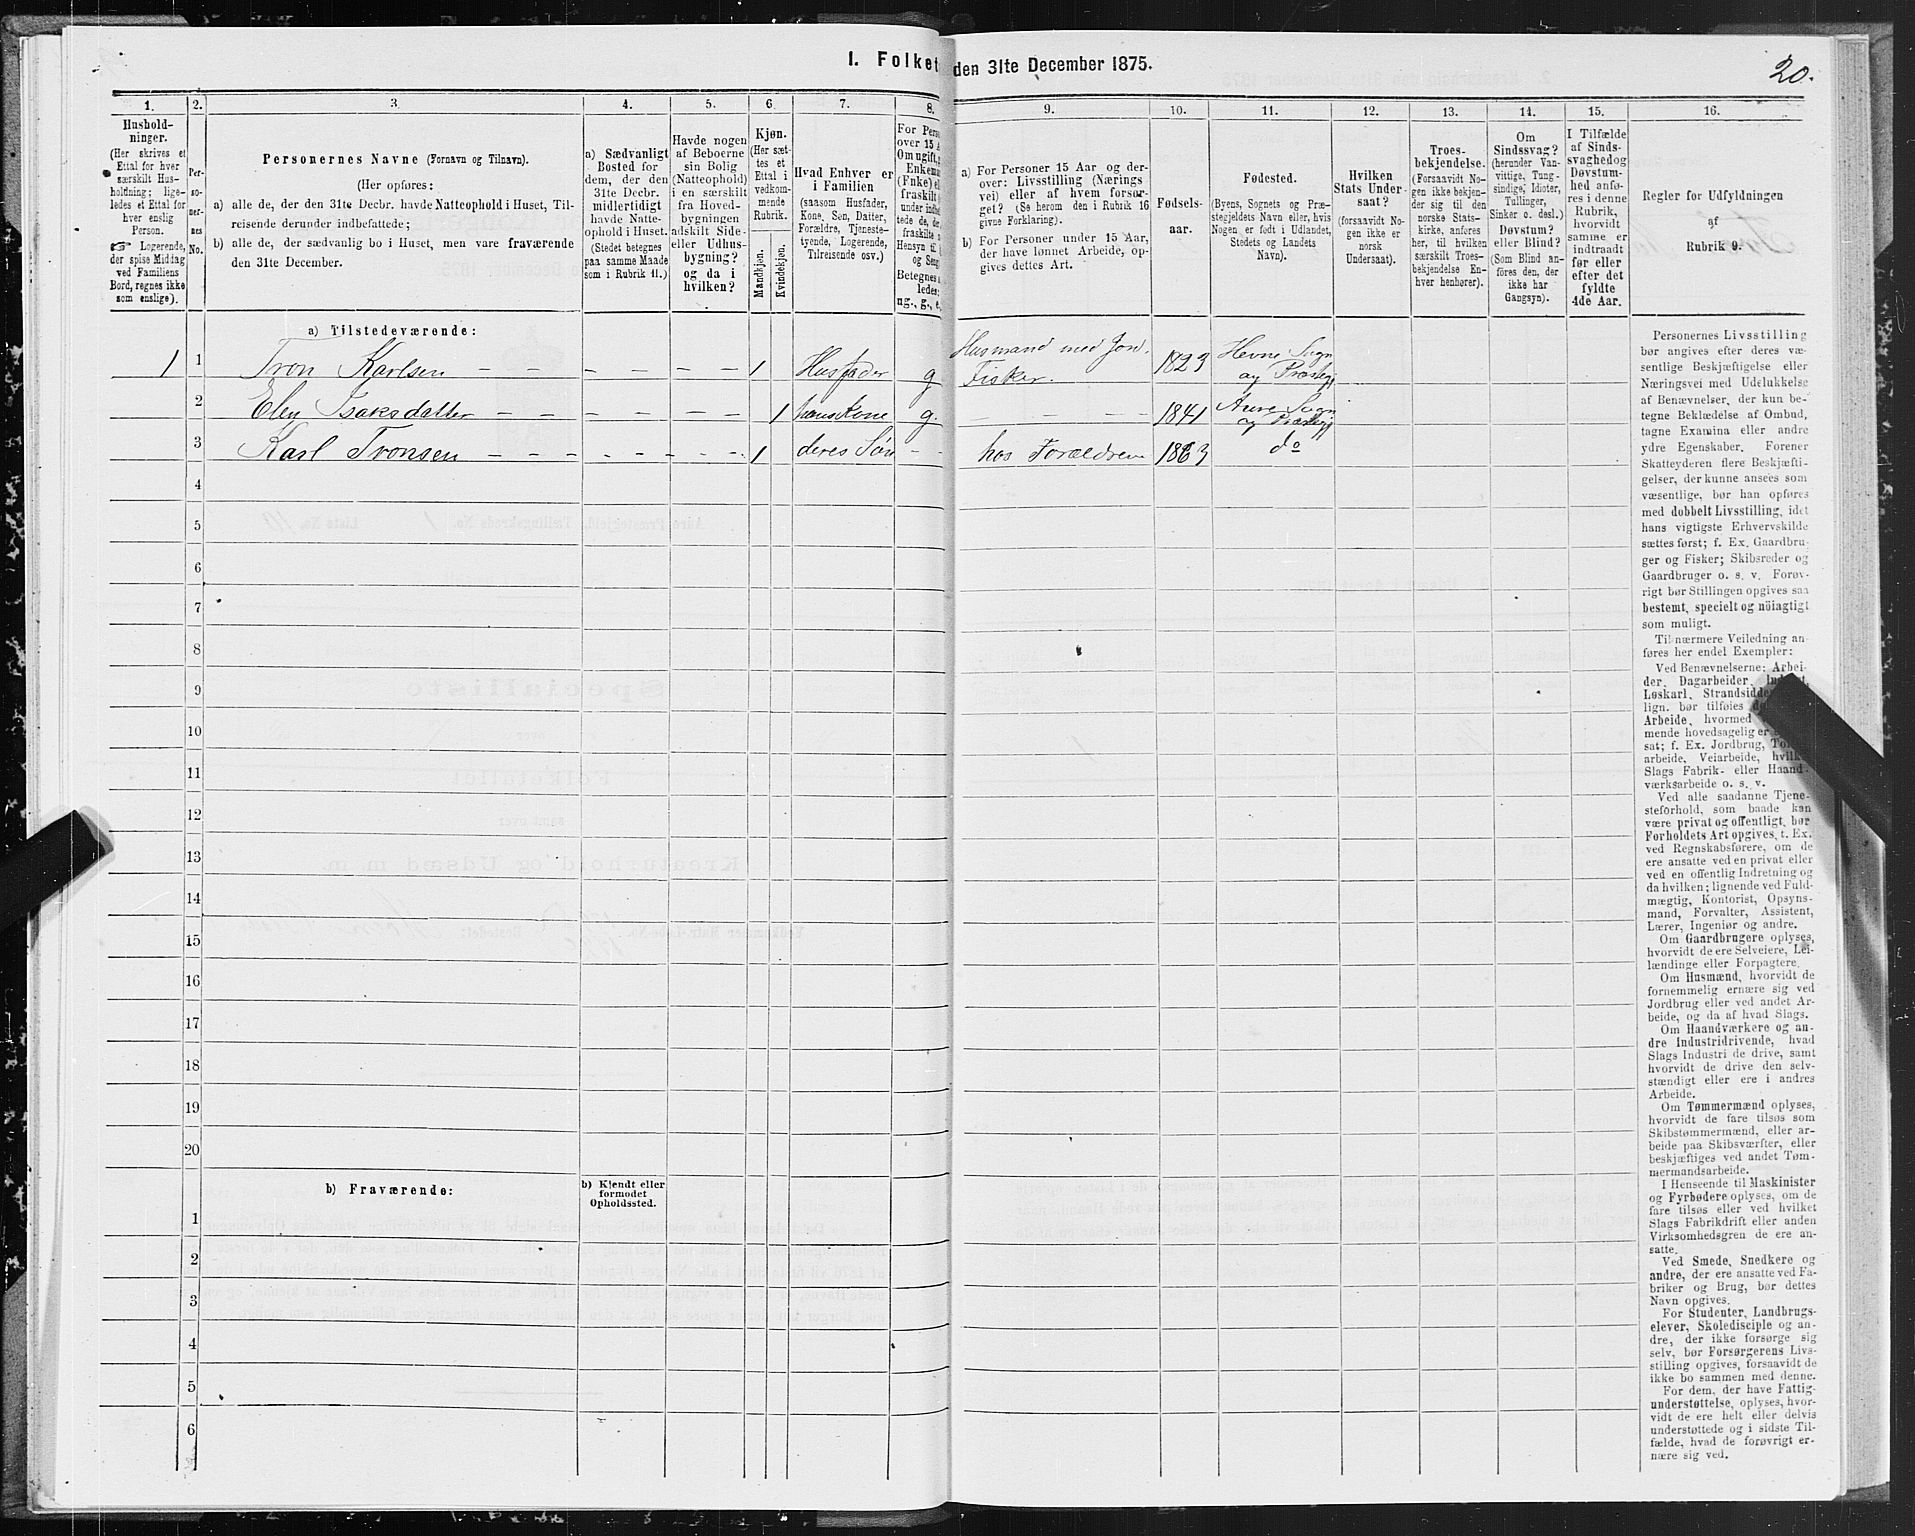 20.
I. Folket
den 31te December 1875.
1.
2.
3.
4.
5.
6.
7.
8.
9.
10.
11.
12.
13.
14.
15.
16.
Hushold-
ninger.
(Her skrives et
Ettal for hver
særskilt Hus-
holdning; lige-
ledes et Ettal for
hver enslig
Person.
☞ Logerende,
der spise Middag
ved Familiens
Bord, regnes ikke
som enslige).
Per-
so-
ner-
nes
No.
Personernes Navne (Fornavn og Tilnavn).
(Her opføres:
a) alle de, der den 31te Decbr. havde Natteophold i Huset, Til-
reisende derunder indbefattede;
b) alle de, der sædvanlig bo i Huset, men vare fraværende
den 31te December.
a) Sædvanligt
Bosted for
dem, der den
31te Decbr.
midlertidigt
havde Natte-
ophold i Huset.
(Stedet betegnes
paa samme Maade
som i Rubrik 11.)
Havde nogen
af Beboerne
sin Bolig
(Natteophold)
i en særskilt
fra Hoved-
bygningen
adskilt Side-
eller Udhus-
bygning?
og da i
hvilken?
Kjøn.
(Her sæt-
tes et
Ettal i
vedkom-
mende
Rubrik.
Mandkjøn.
Kvindekjøn.
Hvad Enhver er
i Familien
(saasom Husfader,
Kone, Søn, Datter,
Forældre, Tjeneste-
tyende, Logerende,
Tilreisende osv.)
For Pers
over 15 A
Om ugift,
Enkem
(Fnke) el
fraskilt
under indb
tede de, de
fraskilte
Hensyn til
og Seng
Betegnes
ledes:
ug., g., e.
a) For Personer 15 Aar og der-
over: Livsstilling (Nærings
vei) eller af hvem forsør-
get? (Se herom den i Rubrik 16
givne Forklaring).
b) For Personer under 15 Aar,
der have lønnet Arbeide, op-
gives dettes Art.
Fødsels-
aar.
Fødested.
(Byens, Sognets og Præ-
stegjeldets Navn eller, hvis
Nogen er født i Udlandet,
Stedets og Landets
Navn).
Hvilken
Stats Under-
saat?
(forsaavidt No-
gen ikke er
norsk
Undersaat).
Troes-
bekjendelse.
(Forsaavidt No-
gen ikke bekjen-
der sig til den
norske Stats-
kirke, anføres
her, til hvilken
særskilt Troes-
bekjendelse En-
hver henhører).
Om
Sindssvag?
(herunder Van-
vittige, Tung-
sindige, Idioter,
Tullinger,
Sinker o. desl.)
Døvstum?
eller Blind?
(Som Blind an-
føres den, der
ikke har
Gangsyn).
I Tilfælde
af Sinds-
svaghedog
Døvstum-
hed anfø-
res i denne
Rubrik,
hvorvidt
samme er
indtraadt
før eller
efter det
fyldte
4de Aar.
Regler for Udfyldningen
af
Rubrik 9.
a) Tilstedeværende:
1 1 Tron Karlsen 1 Husfader g Husmand med Jord. Fisker. 1823 Hevne Sogn og Præstegj
2 Elen Isaksdatter 1 hans Kone g. 1841 Aure Sogn og Præstegj
3 Karl Tronsen 1 deres Søn hos Forældrene 1863 do
4
5
6
7
8
9
10
11
12
13
14
15
16
17
18
19
20
b) Fraværende:
b) Kjendt eller
formodet
Opholdssted.
1
2
3
4
5
6
Personernes Livsstilling
bør angives efter deres væ-
sentlige Beskjæftigelse eller
Næringsvei med Udelukkelse
af Benævnelser, der kun be-
tegne Beklædelse af Ombud,
tagne Examina eller andre
ydre Egenskaber. Forener
Skatteyderen flere Beskjæfti-
gelser, der kunne ansees som
væsentlige, bør han opføres
med dobbelt Livsstilling, idet
hans vigtigste Erhvervskilde
sættes først; f. Ex. Gaardbru-
ger og Fisker; Skibsreder og
Gaardbruger o. s. v. Forøv-
rigt bør Stillingen opgives saa
bestemt, specielt og nöiagtigt
som muligt.
Til nærmere Veiledning an-
føres her endel Exempler:
Ved Benævnelserne: Arbei-
der, Dagarbeider,
Løskarl, Strandsidder
lign. bør tilføies
Arbeide, hvormed
mende hovedsagelig er
sat; f. Ex. Jordbrug,
arbeide, Veiarbeide,
Slags Fabrik- eller Haand-
værksarbeide o. s. v.
Ved alle saadanne Tjene-
steforhold, som baade kan
være privat og offentligt, bør
Forholdets Art opgives, t. Ex.
ved Regnskabsførere, om de
ere ansatte ved en privat eller
ved en offentlig Indretning og
da hvilken; lignende ved Fuld-
mægtig, Kontorist, Opsyns-
mand, Forvalter, Assistent,
Lærer, Ingeniør og andre.
Om Gaardbrugere oplyses,
hvorvidt de ere Selveiere, Lei-
lændinge eller Forpagtere.
Om Husmænd, hvorvidt de
fornemmelig ernære sig ved
Jordbrug eller ved andet Ar-
beide, og da af hvad Slags.
Om Haandværkere og an-
dre Industridrivende, hvad
Slags Industri de drive, samt
hvorvidt de drive den selv-
stændigt eller ere i andres
Arbeide.
Om Tømmermænd oplyses,
hvorvidt de fare tilsøs som
Skibstømmermænd, eller ar-
beide paa Skibsværfter, eller
beskjæftiges ved andet Tøm-
mermandsarbeide.
I Henseende til Maskinister
og Fyrbødere oplyses, om de
fare tilsøs eller ved hvilket
Slags Fabrikdrift eller anden
Virksomhedsgren de ere an-
satte.
Ved Smede, Snedkere og
andre, der ere ansatte ved Fa-
briker og Brug, bør dettes
Navn opgives.
For Studenter, Landbrugs-
elever, Skoledisciple og an-
dre, der ikke forsørge sig
selv, bør Forsørgerens Livs-
stilling opgives, forsaavidt de
ikke bo sammen med denne.
For dem, der have Fattig-
understøttelse, oplyses, hvor-
vidt de ere helt eller delvis
understøttede og i sidste Til-
fælde, hvad de forøvrigt er-
nære sig ved.